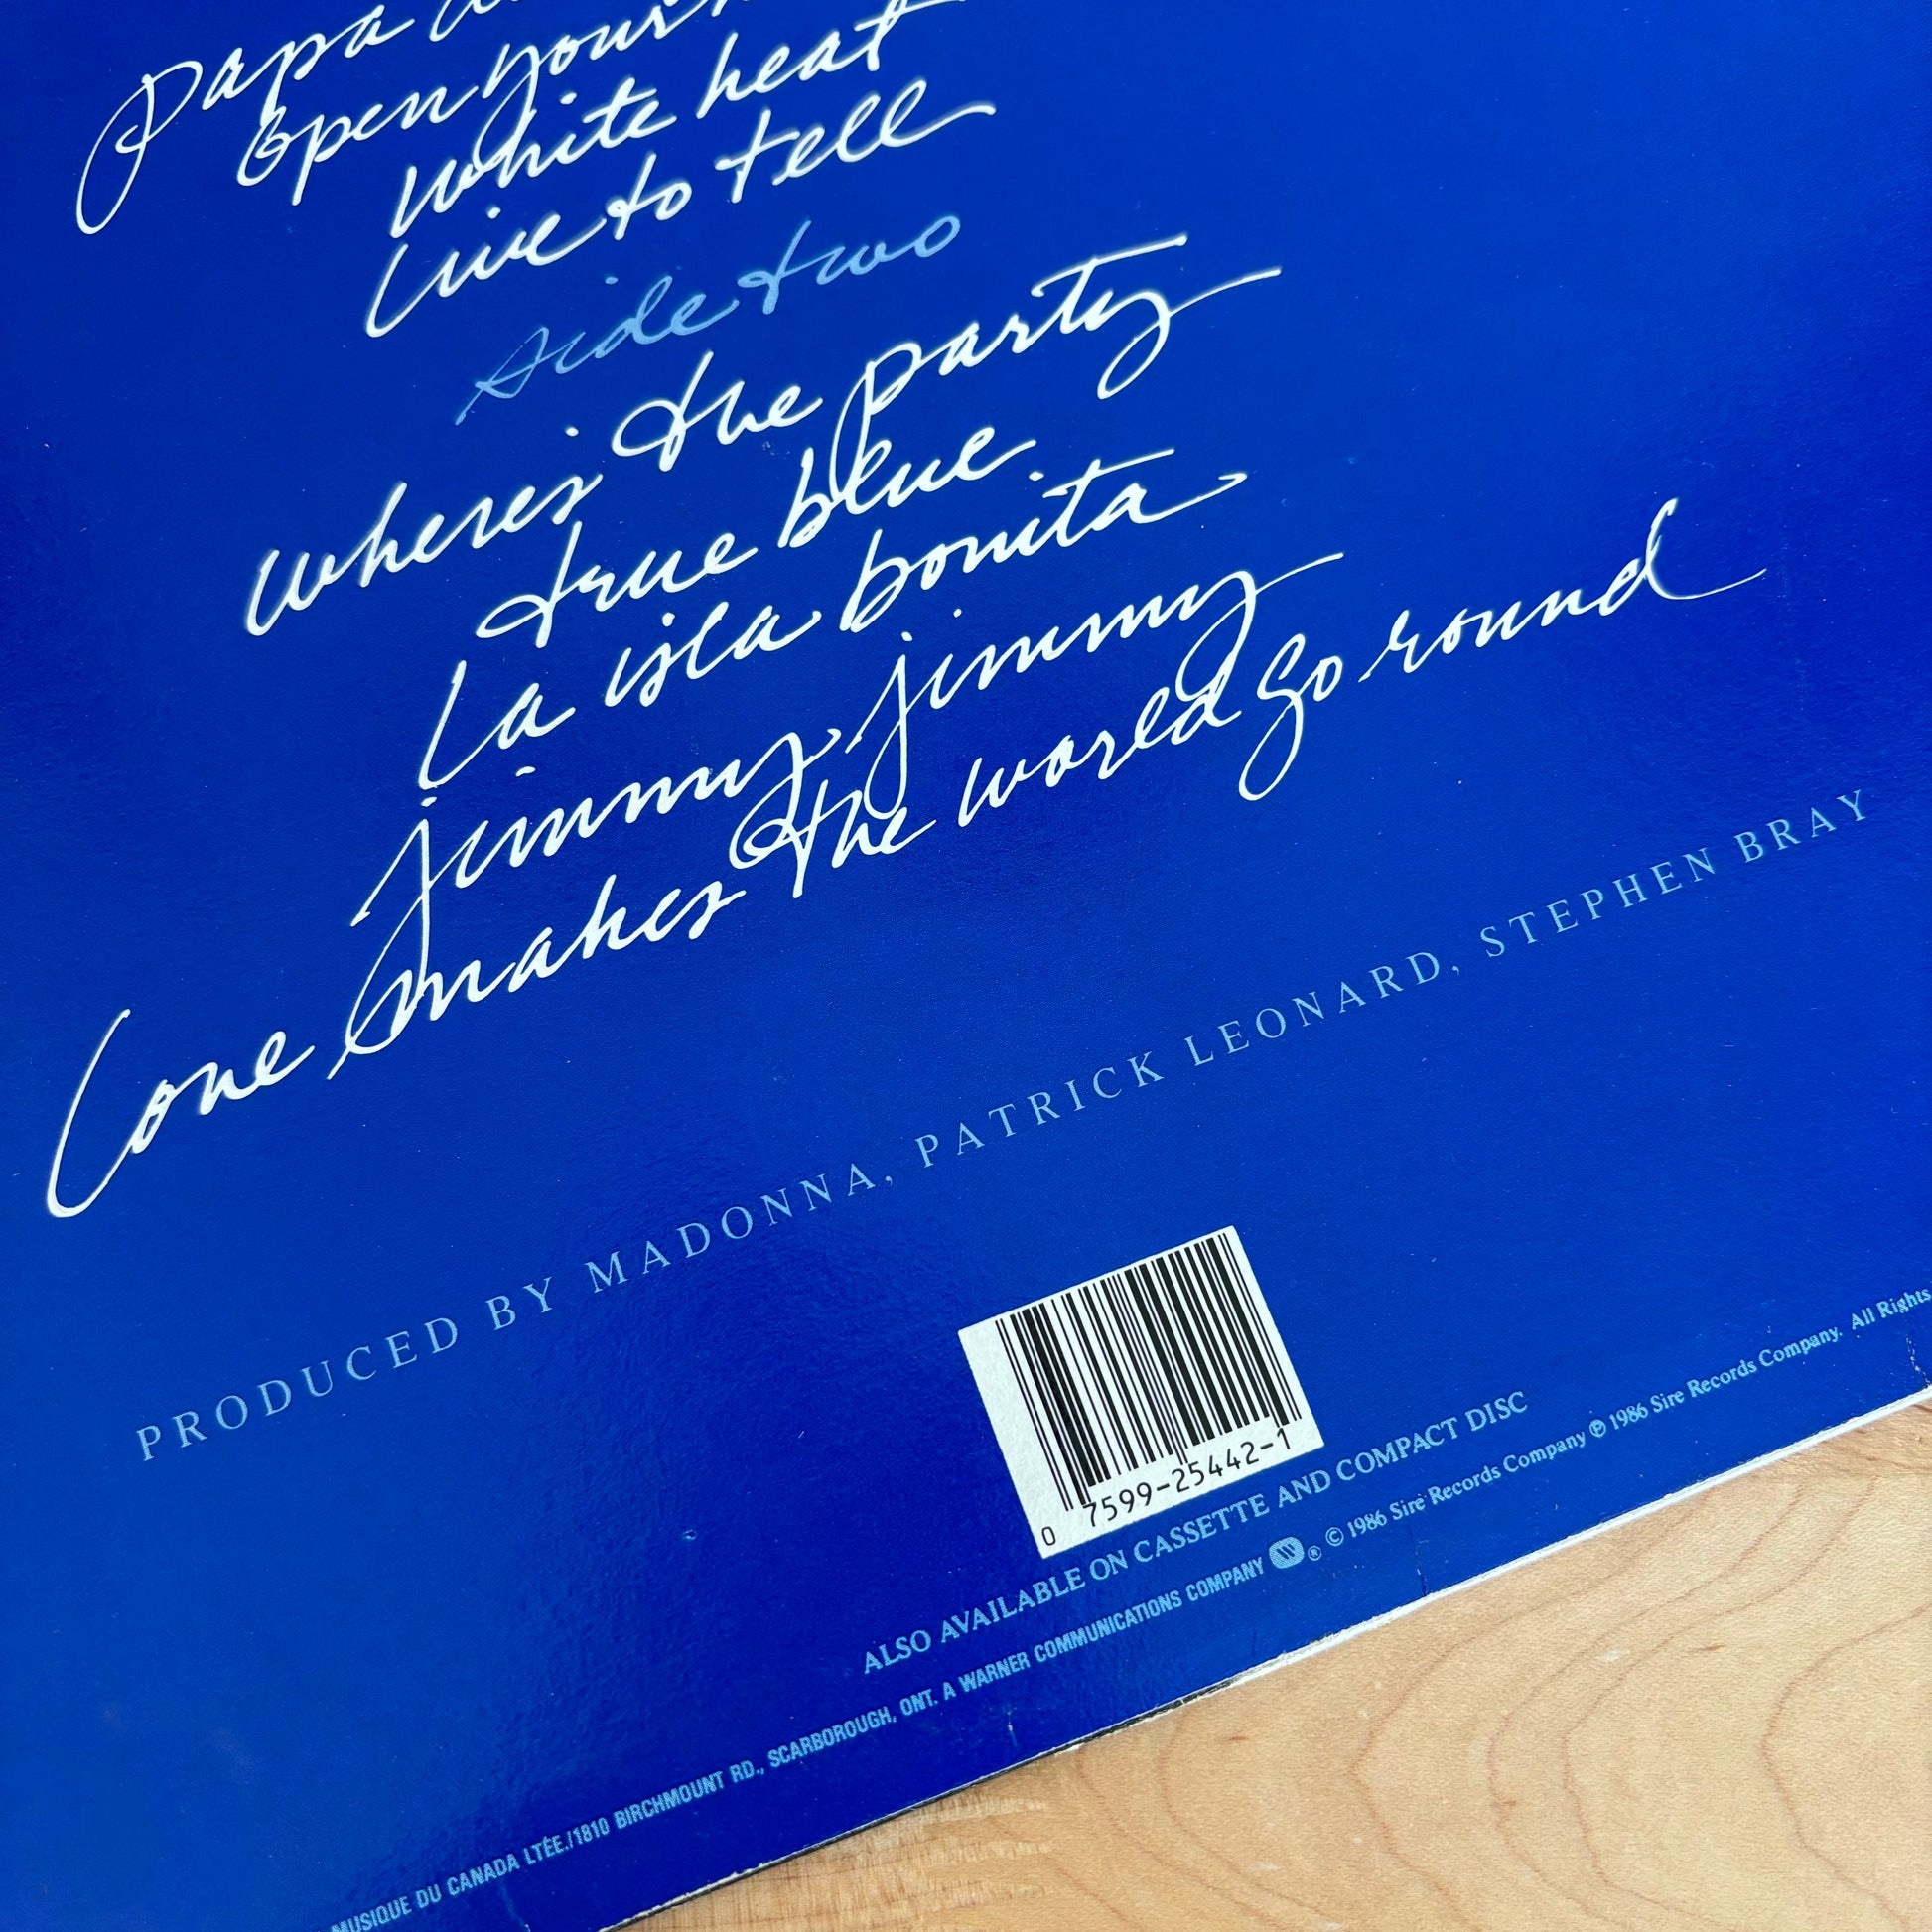 Papa
open your
white heat
live to tell
side two
wheres the party
true blue
la isla bonita
jimmy jimmy
love makes the world go round
PRODUCED BY MADONNA, PATRICK LEONARD, STEPHEN BRAY
0 7599-25442-1
ALSO AVAILABLE ON CASSETTE AND COMPACT DISC
MUSIQUE DU CANADA LTÉE./1810 BIRCHMOUNT RD., SCARBOROUGH, ONT. A WARNER COMMUNICATIONS COMPANY ® © 1986 Sire Records Company ℗ 1986 Sire Records Company. All Rights